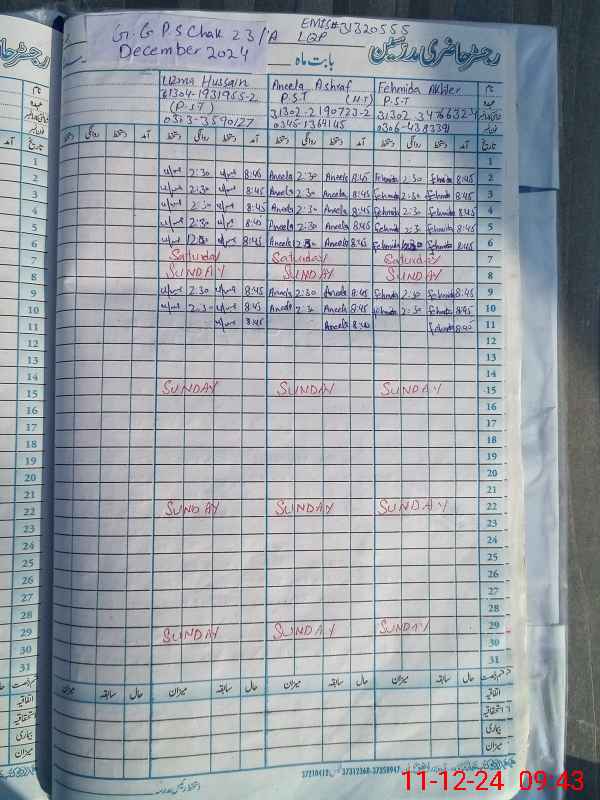 G.G P.S Chak 23/A EMIS#31320555
December 2024 LQP
رجسٹر حاضری مدرسین بابت ماہ
Uzma Hussain Aneela Ashraf Fehmida Akhter نام
31304-1931955-2 P.S.T (H.T) P.S.T عہدہ
(P.S.T) 31302-2190723-2
0345-1369145
دستخط روانگی دستخط آمد دستخط روانگی دستخط آمد دستخط روانگی دستخط آمد دستخط روانگی دستخط آمد تاریخ
1
2:30 8:45 Aneela 2:30 Aneela 8:45 Fehmida 2:30 Fehmida 8:45 2
2:30 8:45 Aneela 2:30 Aneela 8:45 Fehmida 2:30 Fehmida 8:45 3
2:30 8:45 Aneela 2:30 Aneela 8:45 Fehmida 2:30 Fehmida 8:45 4
2:30 8:45 Aneela 2:30 Aneela 8:45 Fehmida 2:30 Fehmida 8:45 5
8:45 Aneela Aneela 8:45 Fehmida 8:45 6
Saturday Saturday Saturday 7
SUNDAY SUNDAY SUNDAY 8
2:30 8:45 Aneela 2:30 Aneela 8:45 Fehmida 2:30 Fehmida 8:45 9
2:30 8:45 Aneela 2:30 Aneela 8:45 Fehmida 2:30 Fehmida 8:45 10
8:45 Aneela 8:40 Fehmida 8:40 11
12
13
14
SUNDAY SUNDAY SUNDAY 15
16
17
18
19
20
21
SUNDAY SUNDAY SUNDAY 22
23
24
25
26
27
28
SUNDAY SUNDAY SUNDAY 29
30
31
میزان سابقہ حال میزان سابقہ حال میزان سابقہ حال میزان سابقہ حال
اتفاقیہ
استحقاقیہ
بیماری
میزان
دستخط رئیس مدرسہ
11-12-24 09:43